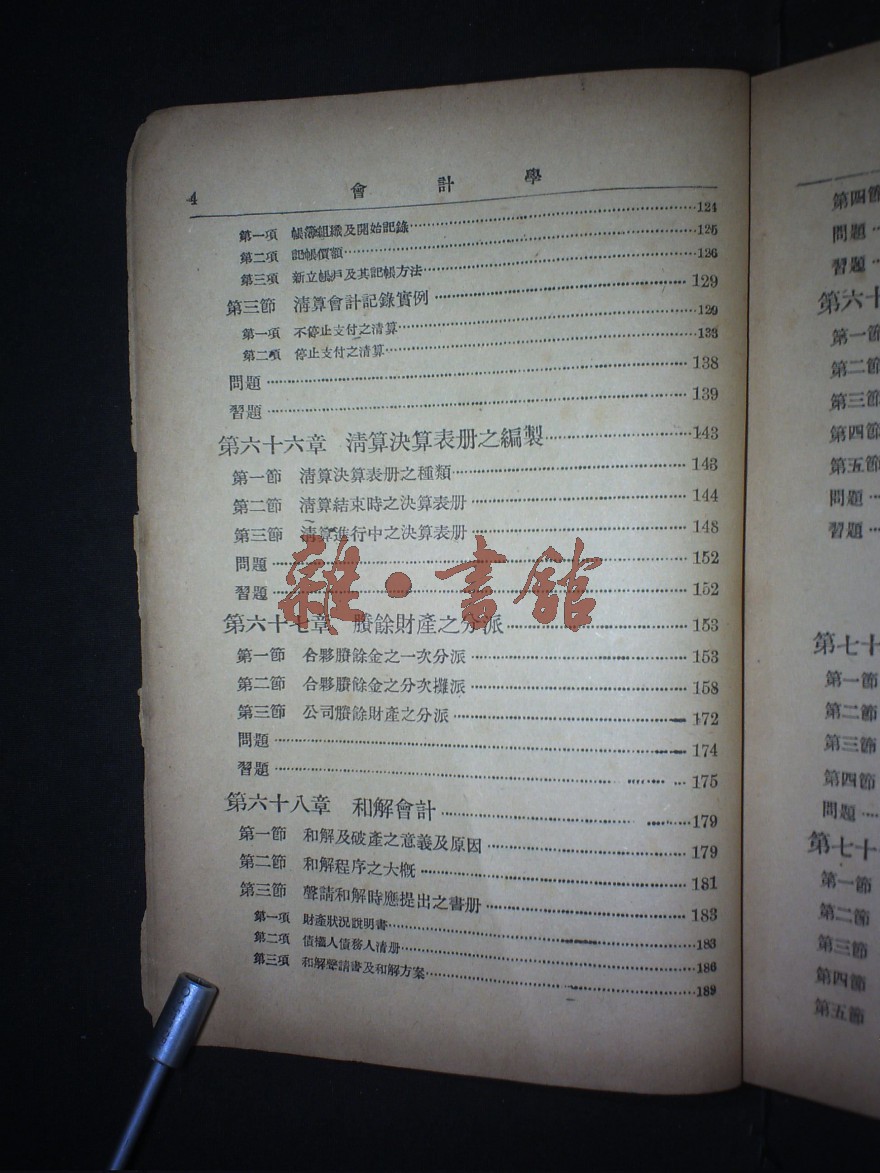 4 會計學
第一項 帳簿組織及開始記錄 124
第二項 記帳價額 125
第三項 新立帳戶及其記帳方法 126
第三節 淸算會計記錄實例 129
第一項 不停止支付之淸算 129
第二項 停止支付之淸算 133
問題 138
習題 139
第六十六章 淸算決算表册之編製 143
第一節 淸算決算表册之種類 143
第二節 淸算結束時之決算表册 144
第三節 淸算進行中之決算表册 148
問題 152
習題 152
第六十七章 賸餘財產之分派 153
第一節 合夥賸餘金之一次分派 153
第二節 合夥賸餘金之分次攤派 158
第三節 公司賸餘財產之分派 172
問題 174
習題 175
第六十八章 和解會計 179
第一節 和解及破產之意義及原因 179
第二節 和解程序之大概 181
第三節 聲請和解時應提出之書册 183
第一項 財產狀況說明書 183
第二項 債權人債務人淸册 186
第三項 和解聲請書及和解方案 189
雜·書館
第四節
問題
習題
第六十
第一節
第二節
第三節
第四節
第五節
問題
習題
第七十
第一節
第二節
第三節
第四節
問題
第七十
第一節
第二節
第三節
第四節
第五節